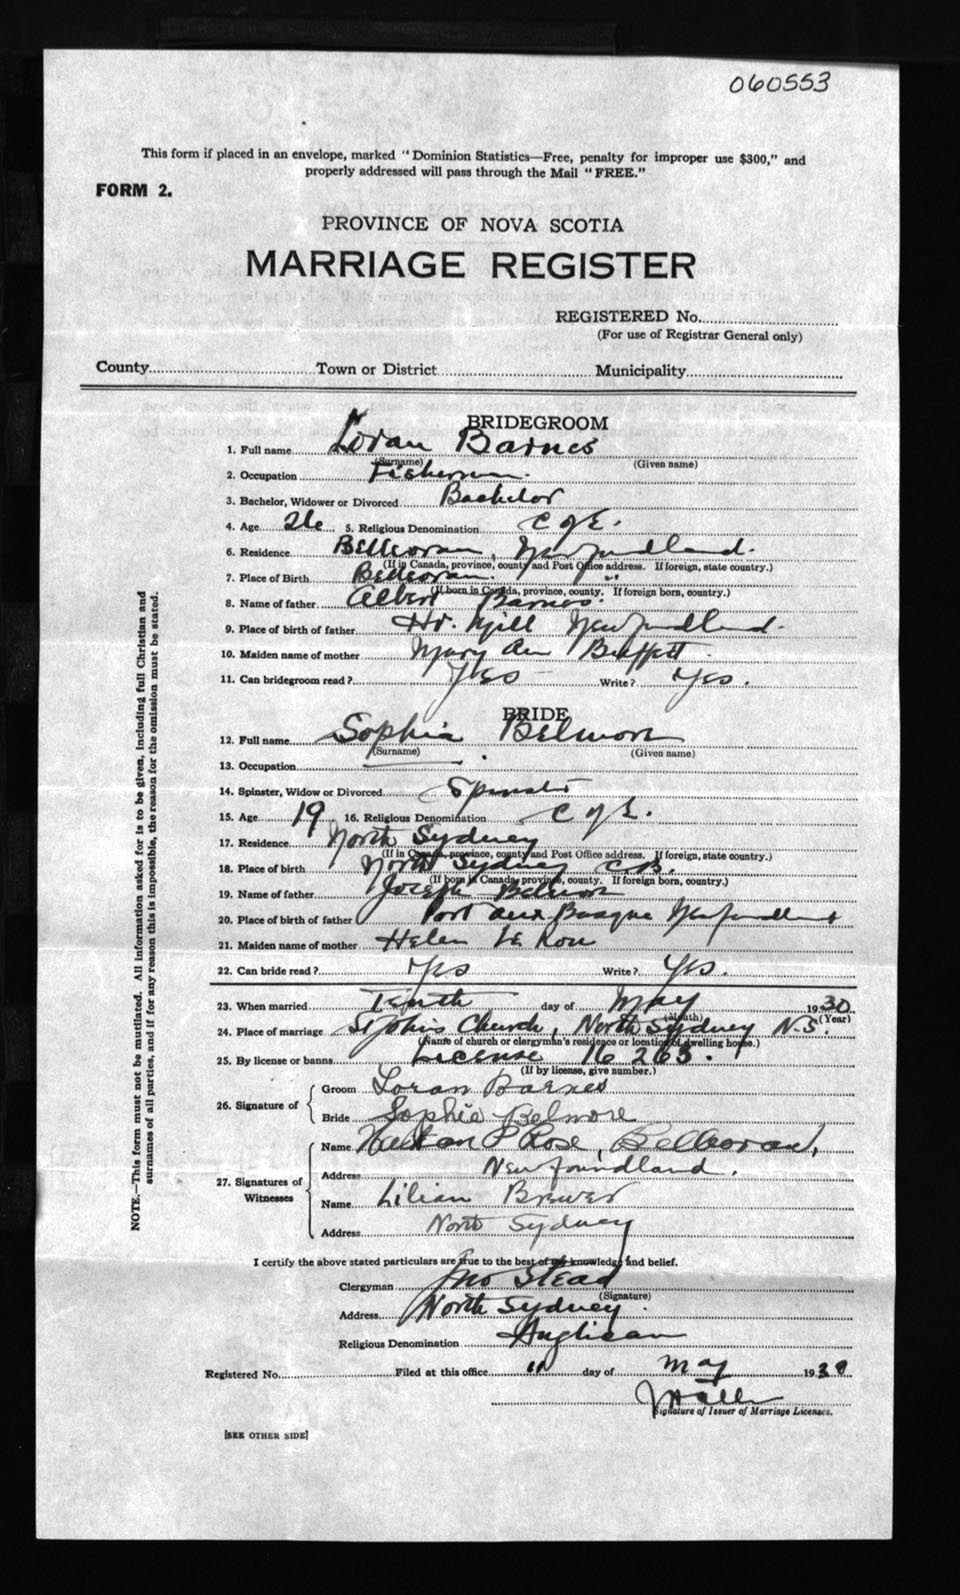 060553
This form if placed in an envelope, marked "Dominion Statistics—Free, penalty for improper use $300," and
properly addressed will pass through the Mail "FREE."
FORM 2.
PROVINCE OF NOVA SCOTIA
MARRIAGE REGISTER
REGISTERED No.
(For use of Registrar General only)
County Town or District Municipality
BRIDEGROOM
1. Full name Loran Barnes
(Surname) (Given name)
2. Occupation Fisherman.
3. Bachelor, Widower or Divorced Bachelor
4. Age 26 5. Religious Denomination C of E.
6. Residence Belleoram, Newfoundland.
(If in Canada, province, county and Post Office address. If foreign, state country.)
7. Place of Birth Belleoram. "
(If born in Canada, province, county. If foreign born, country.)
8. Name of father Albert Barnes.
9. Place of birth of father Hr. Mille Newfoundland.
10. Maiden name of mother Mary Ann Buffett
11. Can bridegroom read? Yes Write? Yes.
BRIDE
12. Full name Sophia Belmore
(Surname) (Given name)
13. Occupation
14. Spinster, Widow or Divorced Spinster
15. Age 19 16. Religious Denomination C of E.
17. Residence North Sydney
(If in Canada, province, county and Post Office address. If foreign, state country.)
18. Place of birth North Sydney C.B.
(If born in Canada, province, county. If foreign born, country.)
19. Name of father Joseph Belmore
20. Place of birth of father Port aux Basque Newfoundland
21. Maiden name of mother Helen
22. Can bride read? Yes Write? Yes.
23. When married Tenth day of May 1930
(Month) (Year)
24. Place of marriage St John's Church, North Sydney N.S
(Name of church or clergyman's residence or location of dwelling house.)
25. By license or banns License 16263.
(If by license, give number.)
26. Signature of
Groom Loran Barnes
Bride Sophie Belmore
27. Signatures of Witnesses
Name P Rose, Belleoram,
Address Newfoundland.
Name Lilian Brewer
Address North Sydney
I certify the above stated particulars are true to the best of my knowledge and belief.
Clergyman Jno Stead
(Signature)
Address North Sydney.
Religious Denomination Anglican
Registered No. Filed at this office 11 day of May 1930
Signature of Issuer of Marriage Licenses.
[SEE OTHER SIDE]
NOTE.—This form must not be mutilated. All information asked for is to be given, including full Christian and
surnames of all parties, and if for any reason this is impossible, the reason for the omission must be stated.